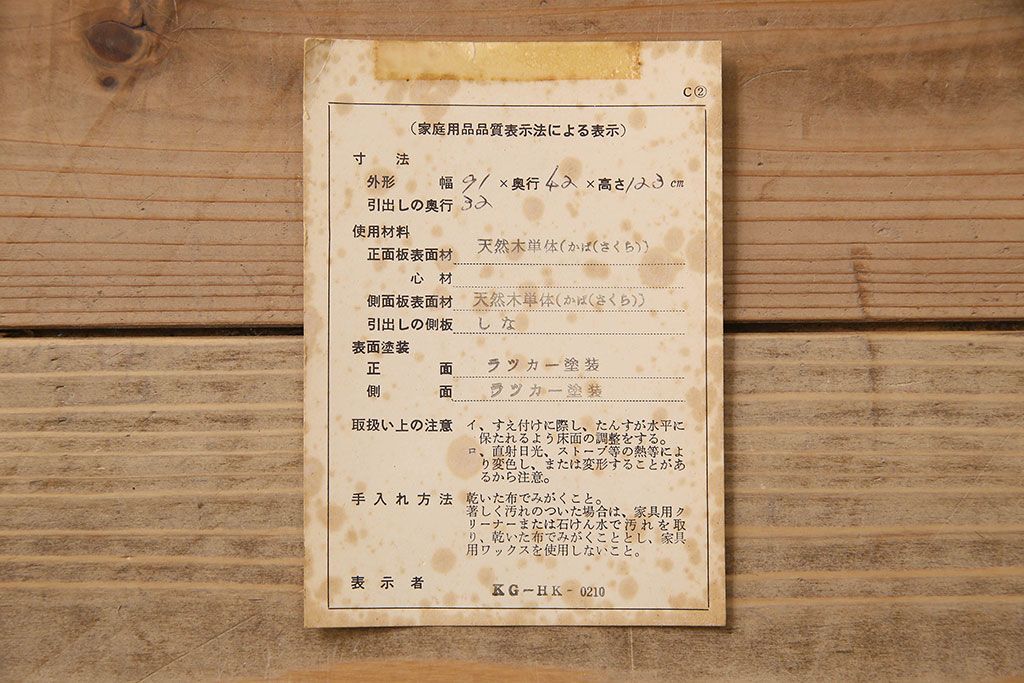 C②
(家庭用品品質表示法による表示)
寸法
外形 幅 91 ×奥行 42 ×高さ 123 cm
引出しの奥行 32
使用材料
正面板表面材 天然木単体(かば(さくら))
心材
側面板表面材 天然木単体(かば(さくら))
引出しの側板 しな
表面塗装
正面 ラツカー塗装
側面 ラツカー塗装
取扱い上の注意 イ、すえ付けに際し、たんすが水平に
保たれるよう床面の調整をする。
ロ、直射日光、ストーブ等の熱等によ
り変色し、または変形することがあ
るから注意。
手入れ方法 乾いた布でみがくこと。
著しく汚れのついた場合は、家具用ク
リーナーまたは石けん水で汚れを取
り、乾いた布でみがくこととし、家具
用ワックスを使用しないこと。
表示者 KG-HK-0210